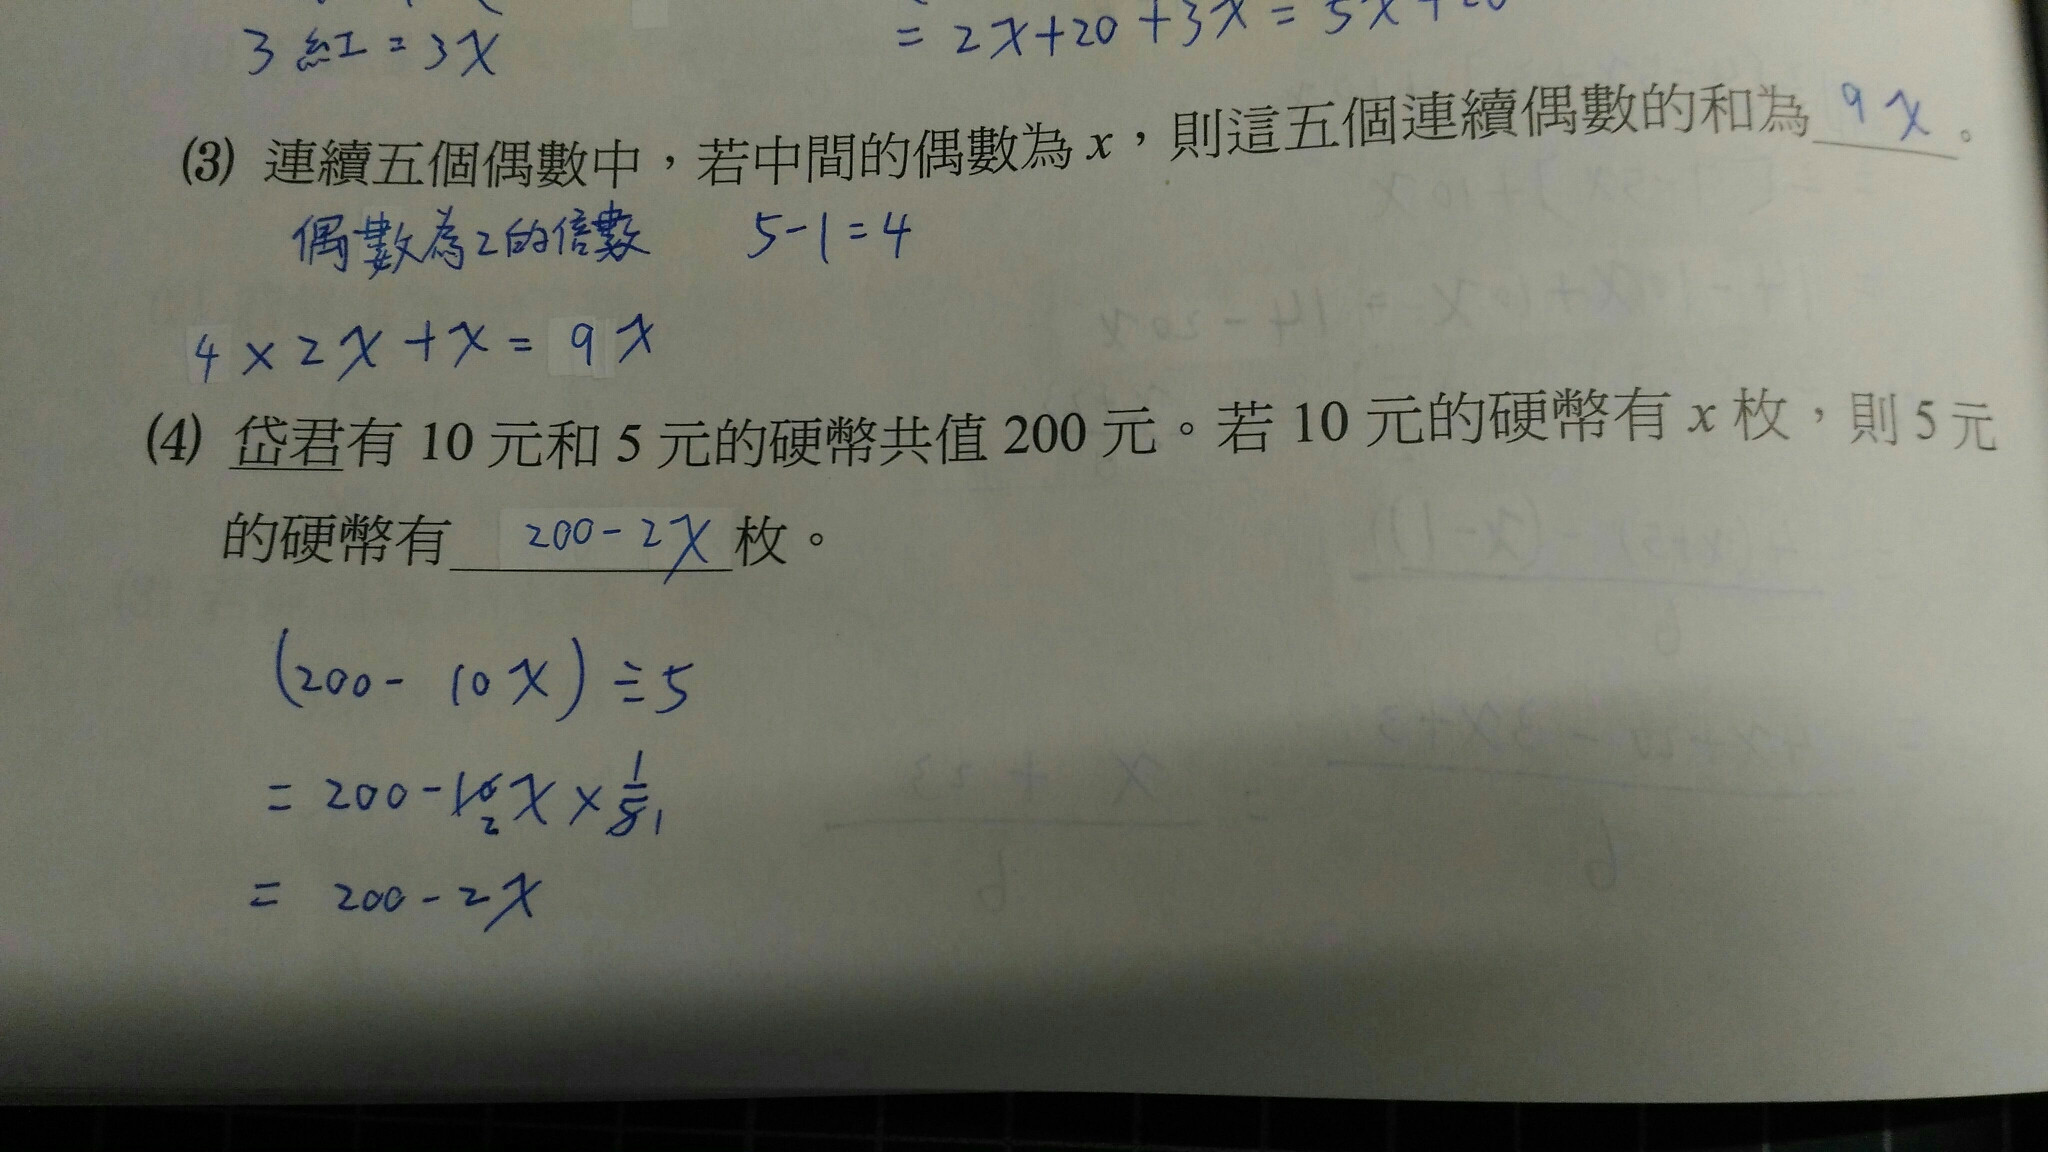 3 紅 = 3x
= 2x+20+3x = 5x+20
(3) 連續五個偶數中，若中間的偶數為 x，則這五個連續偶數的和為 9x。
偶數為2的倍數 5-1=4
4×2x+x=9x
(4) 岱君有 10 元和 5 元的硬幣共值 200 元。若 10 元的硬幣有 x 枚，則 5 元
的硬幣有 200-2x 枚。
(200- 10x)÷5
= 200-10x×1/5
2 1
= 200-2x